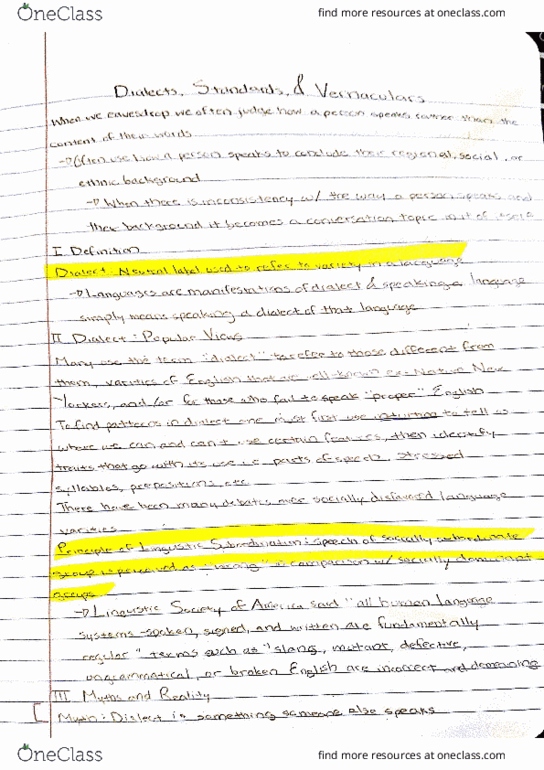 OneClass
find more resources at oneclass.com
Dialects, Standards, & Vernaculars
When we eavesdrop we often judge how a person speaks rather than the
content of their words
→ Often use how a person speaks to conclude their regional, social, or
ethnic background
→ When there is inconsistency w/ the way a person speaks and
their background it becomes a conversation topic in it of itself
I Definition
Dialect: Neutral label used to refer to variety in a language
→ Languages are manifestations of dialect & speaking a language
simply means speaking a dialect of that language
II Dialect: Popular Views
Many use the term "dialect" to refer to those different from
them, varieties of English that are well-known ex: Native New
Yorkers, and/or for those who fail to speak "proper" English
To find patterns in dialect one must first use to tell us
where we can and can't use certain features, then identify
traits that go with its use i.e. parts of speech, stressed
syllables, prepositions, etc.
There have been many debates over socially disfavored language
varieties
Principle of Linguistic Subordination: speech of socially subordinate
group is perceived as "wrong" in comparison w/ socially dominant
groups
→ Linguistic Society of America said "all human language
systems - spoken, signed, and written are fundamentally
regular" terms such as "slang, mutant, defective,
ungrammatical, or broken English are incorrect and demeaning
III Myths and Reality
Myth: Dialect is something someone else speaks
OneClass
find more resources at oneclass.com